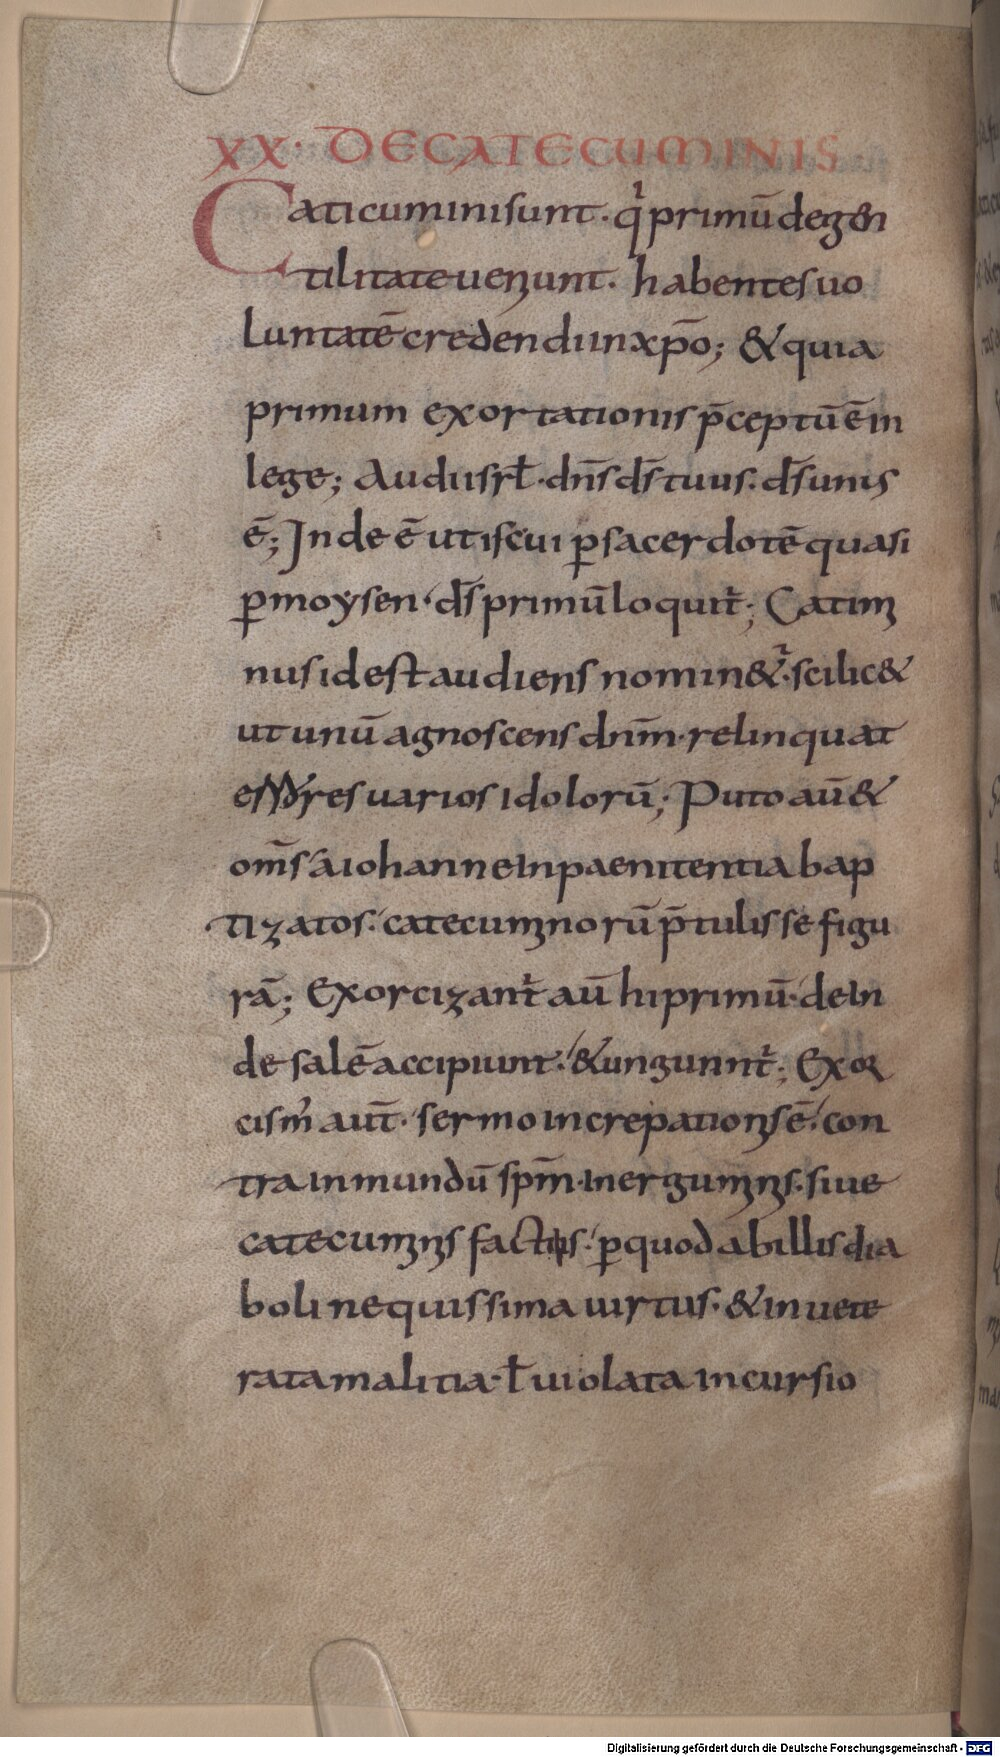 XX· DE CATECUMINIS
Caticumini sunt· qͥ primū de gen
tilitate ueniunt· habentes uo
luntatē credendi in xp̄o; & quia
primum exortationis p̄ceptū ē in
lege; Audi isrł· dn̄s ds̄ tuus· ds̄ unus
ē; Inde ē ut is cui ꝑ sacerdotē quasi
ꝑ moysen· ds̄ primū loquit᷑; Catimi
nus id est audiens nomin&᷑· scilic&
ut unū agnoscens dnm̄· relinquat
res uarios idolorū; Puto aū &
om̄s a iohanne in paenitentia bap
tizatos· catecuminorū p̄tulisse figu
rā; Exorcizant᷑ aū hi primū· dein
de salē accipiunt· & unguunt᷑; Exor
cism᷒ aut̄· sermo increpationis ē· con
tra inmundū spm̄· inerguminis· siue
catecuminis factus· ꝑ quod ab illis dia
boli nequissima uirtus· & inuete
rata malitia· ł uiolata incursio
Digitalisierung gefördert durch die Deutsche Forschungsgemeinschaft - DFG